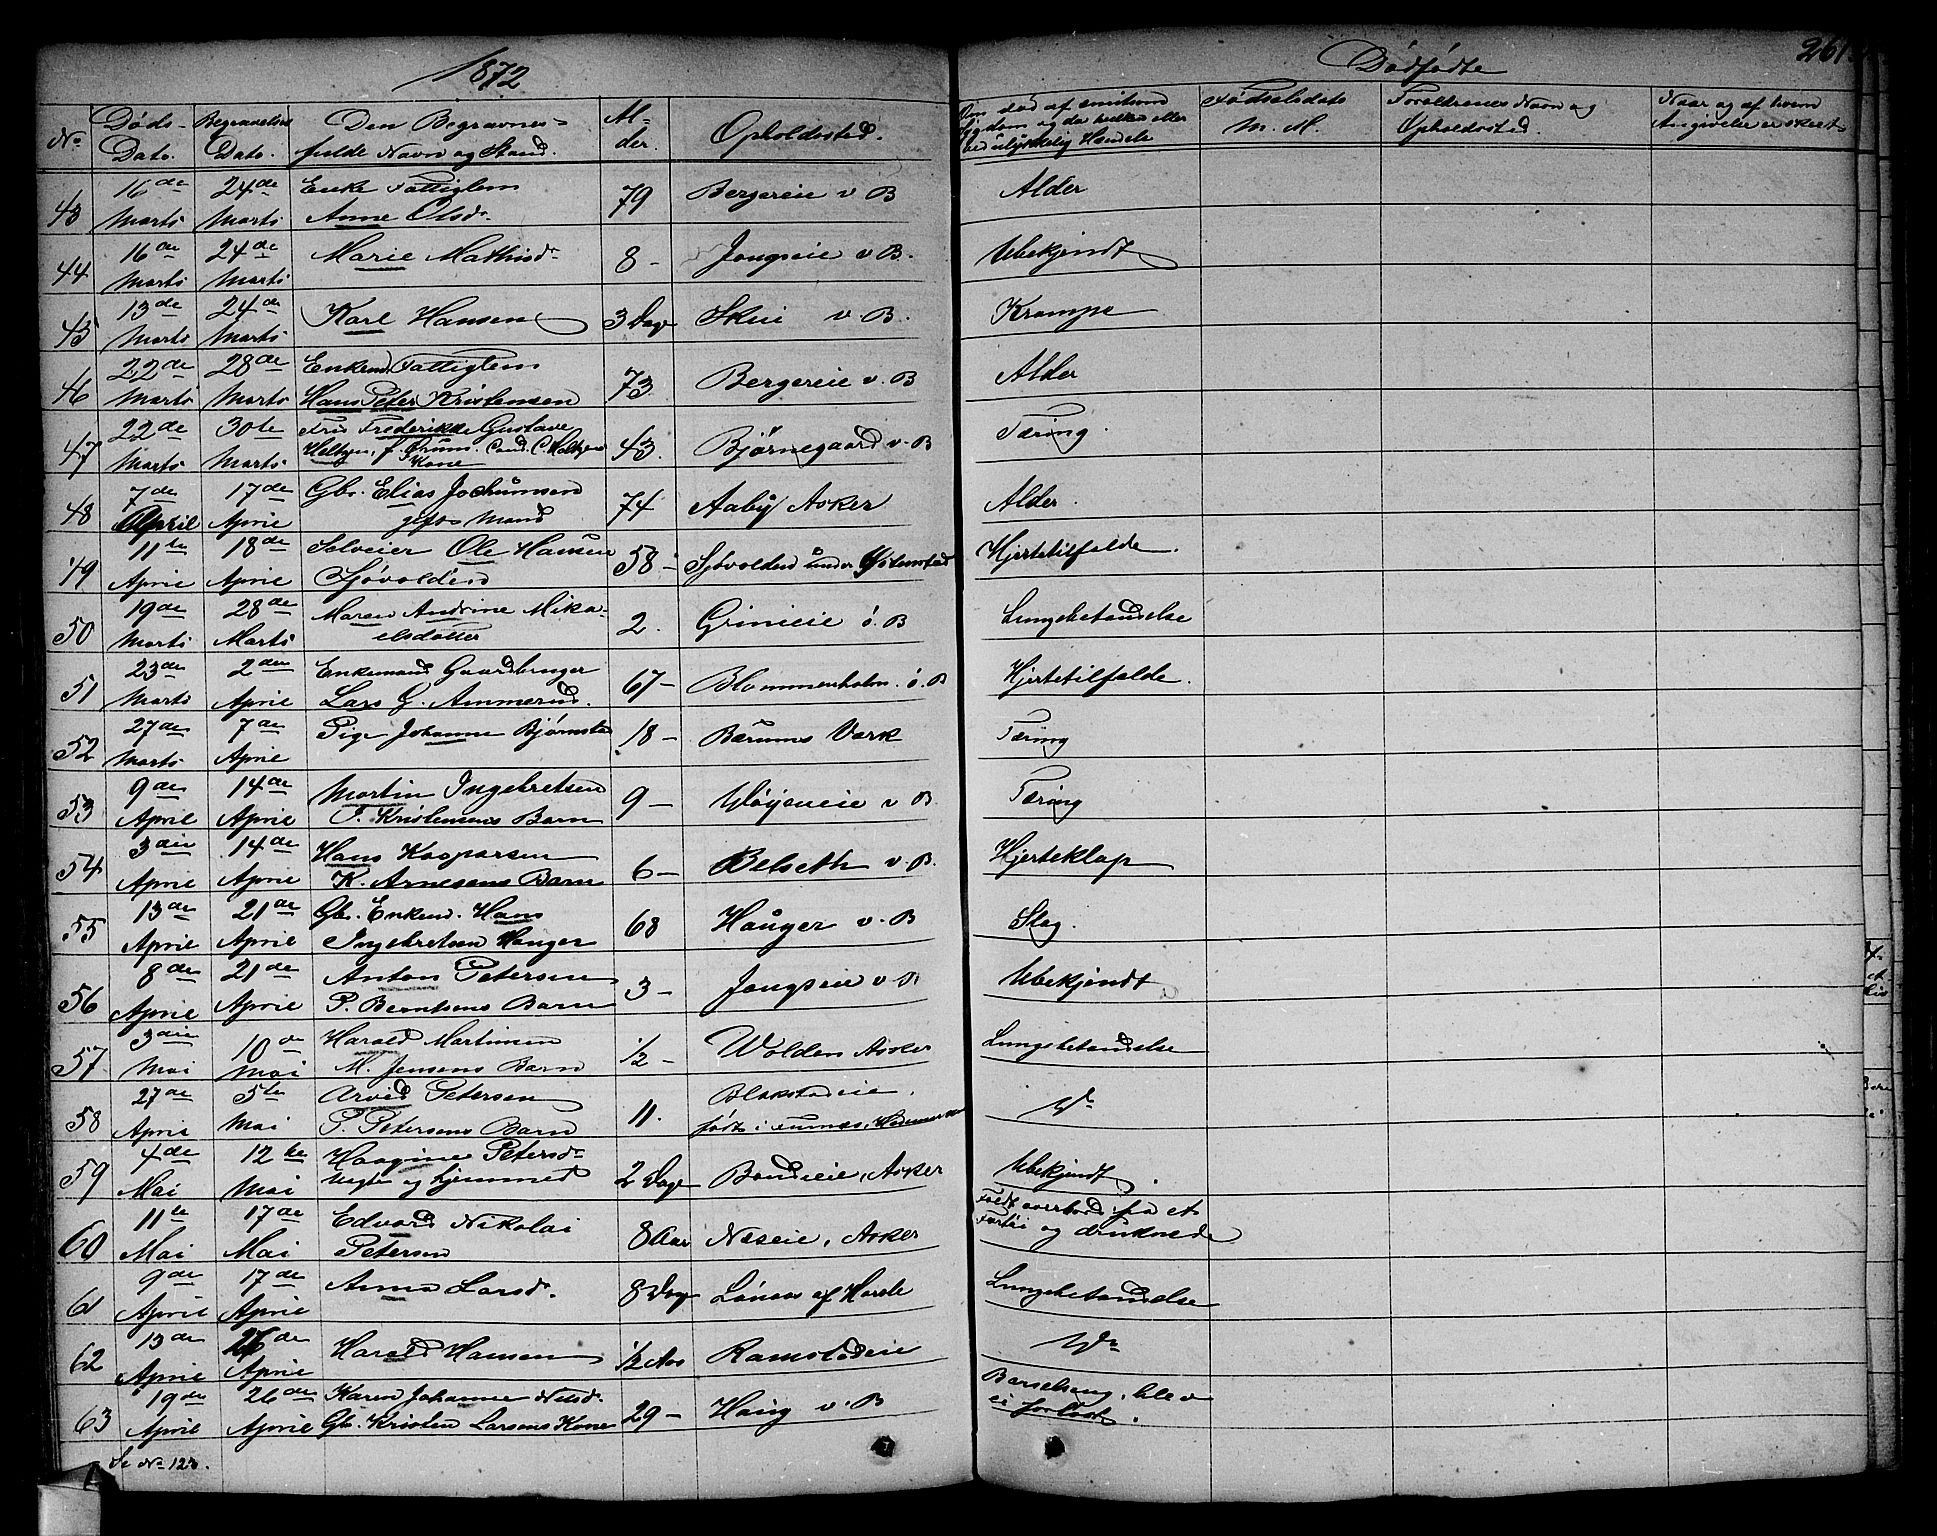 1872
Dødfødte
261
No
Døds-
Dato.
Begravelses
Dato.
Den Begravnes
fulde Navn og Stand.
Al-
der.
Opholdssted.
Fødselsdato
Forældrenes Navn og
Opholdssted.
Naar og af hvem
Angivelse er skeet
43 16de Marts 24de Marts Enke Fattiglem
Anne Olsdr. 79 Bergereie v B Alder
44 16de Marts 24de Marts Marie Mathisdr 8 - Jongseie v B. Ubekjendt
45 13de Marts 24de Marts Karl Hansen 3 Dage Skui v. B. Krampe
46 22de Marts 28de Marts Enkemd. Fattiglem
Hans Peter Kristensen 73 Bergereie v. B Alder
47 22de Marts 30te Marts Fru Frederikke Gustave
Kone 43. Bjørnegaard v. B Tæring.
48 7de April 17de April Gbr. Elias Jochumsen
gift Mand 74 Aaby Asker Alder.
49 11te April 18de April Selveier Ole Hansen
Sjøvolden 58 - Sjøvolden under Hjertetilfælde.
50 19de Marts 28de Marts Maren Andrine Mika-
elsdatter 2. Grinieie ö. B Lungebetændelse
51 23de Marts 2den April Enkemand Gaardbruger
Lars G. Ammerud. 67 - Blommenholm. ö. B Hjertetilfælde.
52 27de Marts 7de April Pige Johanne Bjørnstad 18 - Bærums Værk Tæring
53 9de April 14de April Martin Ingebretsen
P. Kristensens Barn 9 - Wøyeneie v B Tæring
54 3die April 14de April Hans Kasparsen
K. Arnesens Barn 6 - Belseth v. B. Hjerteklap
55 13de April 21de April Gbr. Enkemd. Hans
Ingebretsen Hauger 68 Hauger v. B Slag.
56 8de April 21de April Anton Petersen
P. Berntsens Barn 3 - Jongseie v B. Ubekjendt
57 3die Mai 10de Mai Harald Martinsen
M. Jensens Barn 1/2 - Wolden Asker Lungebetændelse
58 27de April 5te Mai Arvid Petersen
P. Petersens Barn 11. Blakstadeie,
født i
59 4de Mai 12te Mai Haagine Petersdr
Uægte og hjemmed 2 Dage Bondieie, Asker Ubekjendt.
60 11te Mai 17de Mai Edvard Nikolai
Petersen 8 Aar Næseie, Asker Faldt overbord fra et
Fartøi og druknede
61 9de April 17de April Anna Larsdr. 8 Dage Lönaas af Hurdle Lungebetændelse
62 13de April 26de April Harald Hansen 1/2 Aar Ramstadeie
63 19de April 26de April Karen Johanne Nilsdr.
Gbr. Kristen Larsens Kone 29 - Haug v. B Barselseng, blev
ei forløst.
Se No 123.